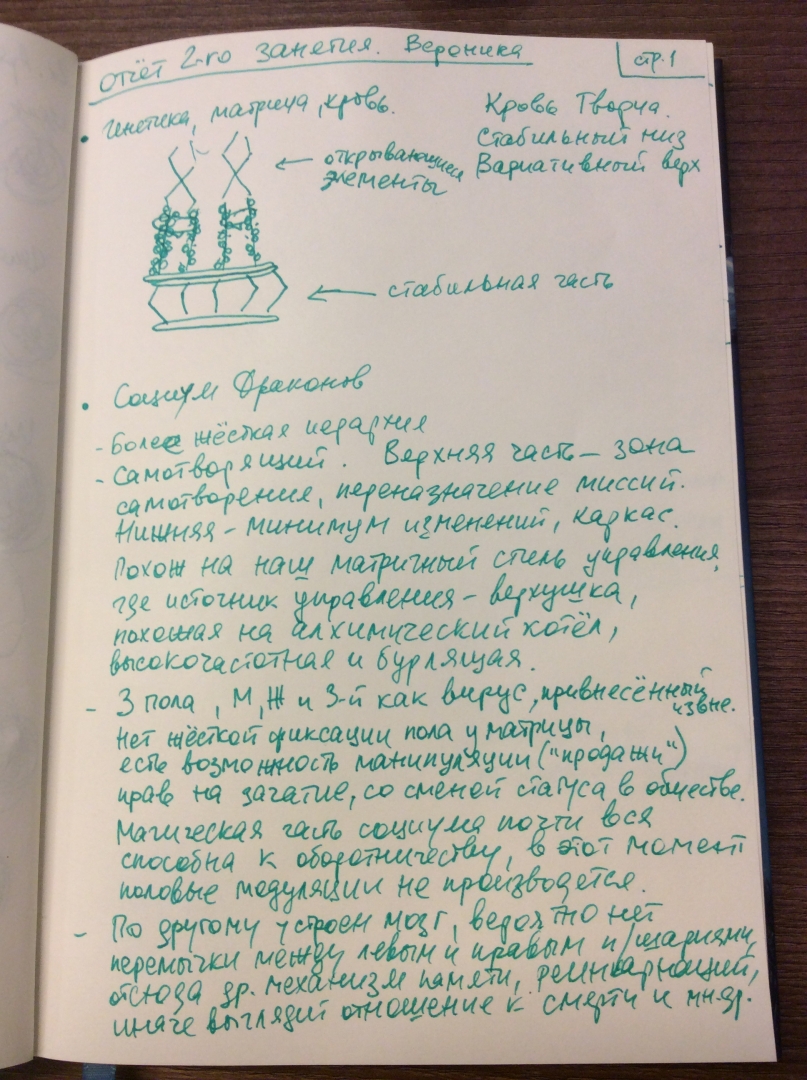 Отчёт 2-го занятия. Вероника
стр. 1
• Генетика, матрица, кровь.
Кровь Творца.
Стабильный низ
Вариативный верх
← открывающиеся
элементы
← стабильная часть
• Социум Драконов
- Более жёсткая иерархия
- Самотворящий. Верхняя часть - зона
самотворения, переназначение миссий.
Нижняя - минимум изменений, каркас.
Похож на наш матричный стиль управления,
где источник управления - верхушка,
похожая на алхимический котёл,
высокочастотная и бурлящая.
- 3 пола, М, Ж и 3-й как вирус, привнесённый
извне.
Нет жёсткой фиксации пола у матрицы,
есть возможность манипуляции ("продажи")
прав на зачатие, со сменой статуса в обществе.
Магическая часть социума почти вся
способна к оборотничеству, в этот момент
половые модуляции не производятся.
- По другому устроен мозг, вероятно нет
перемычки между левым и правым п/шариями,
отсюда др. механизм памяти, реинкарнаций,
иначе выглядит отношение к смерти и